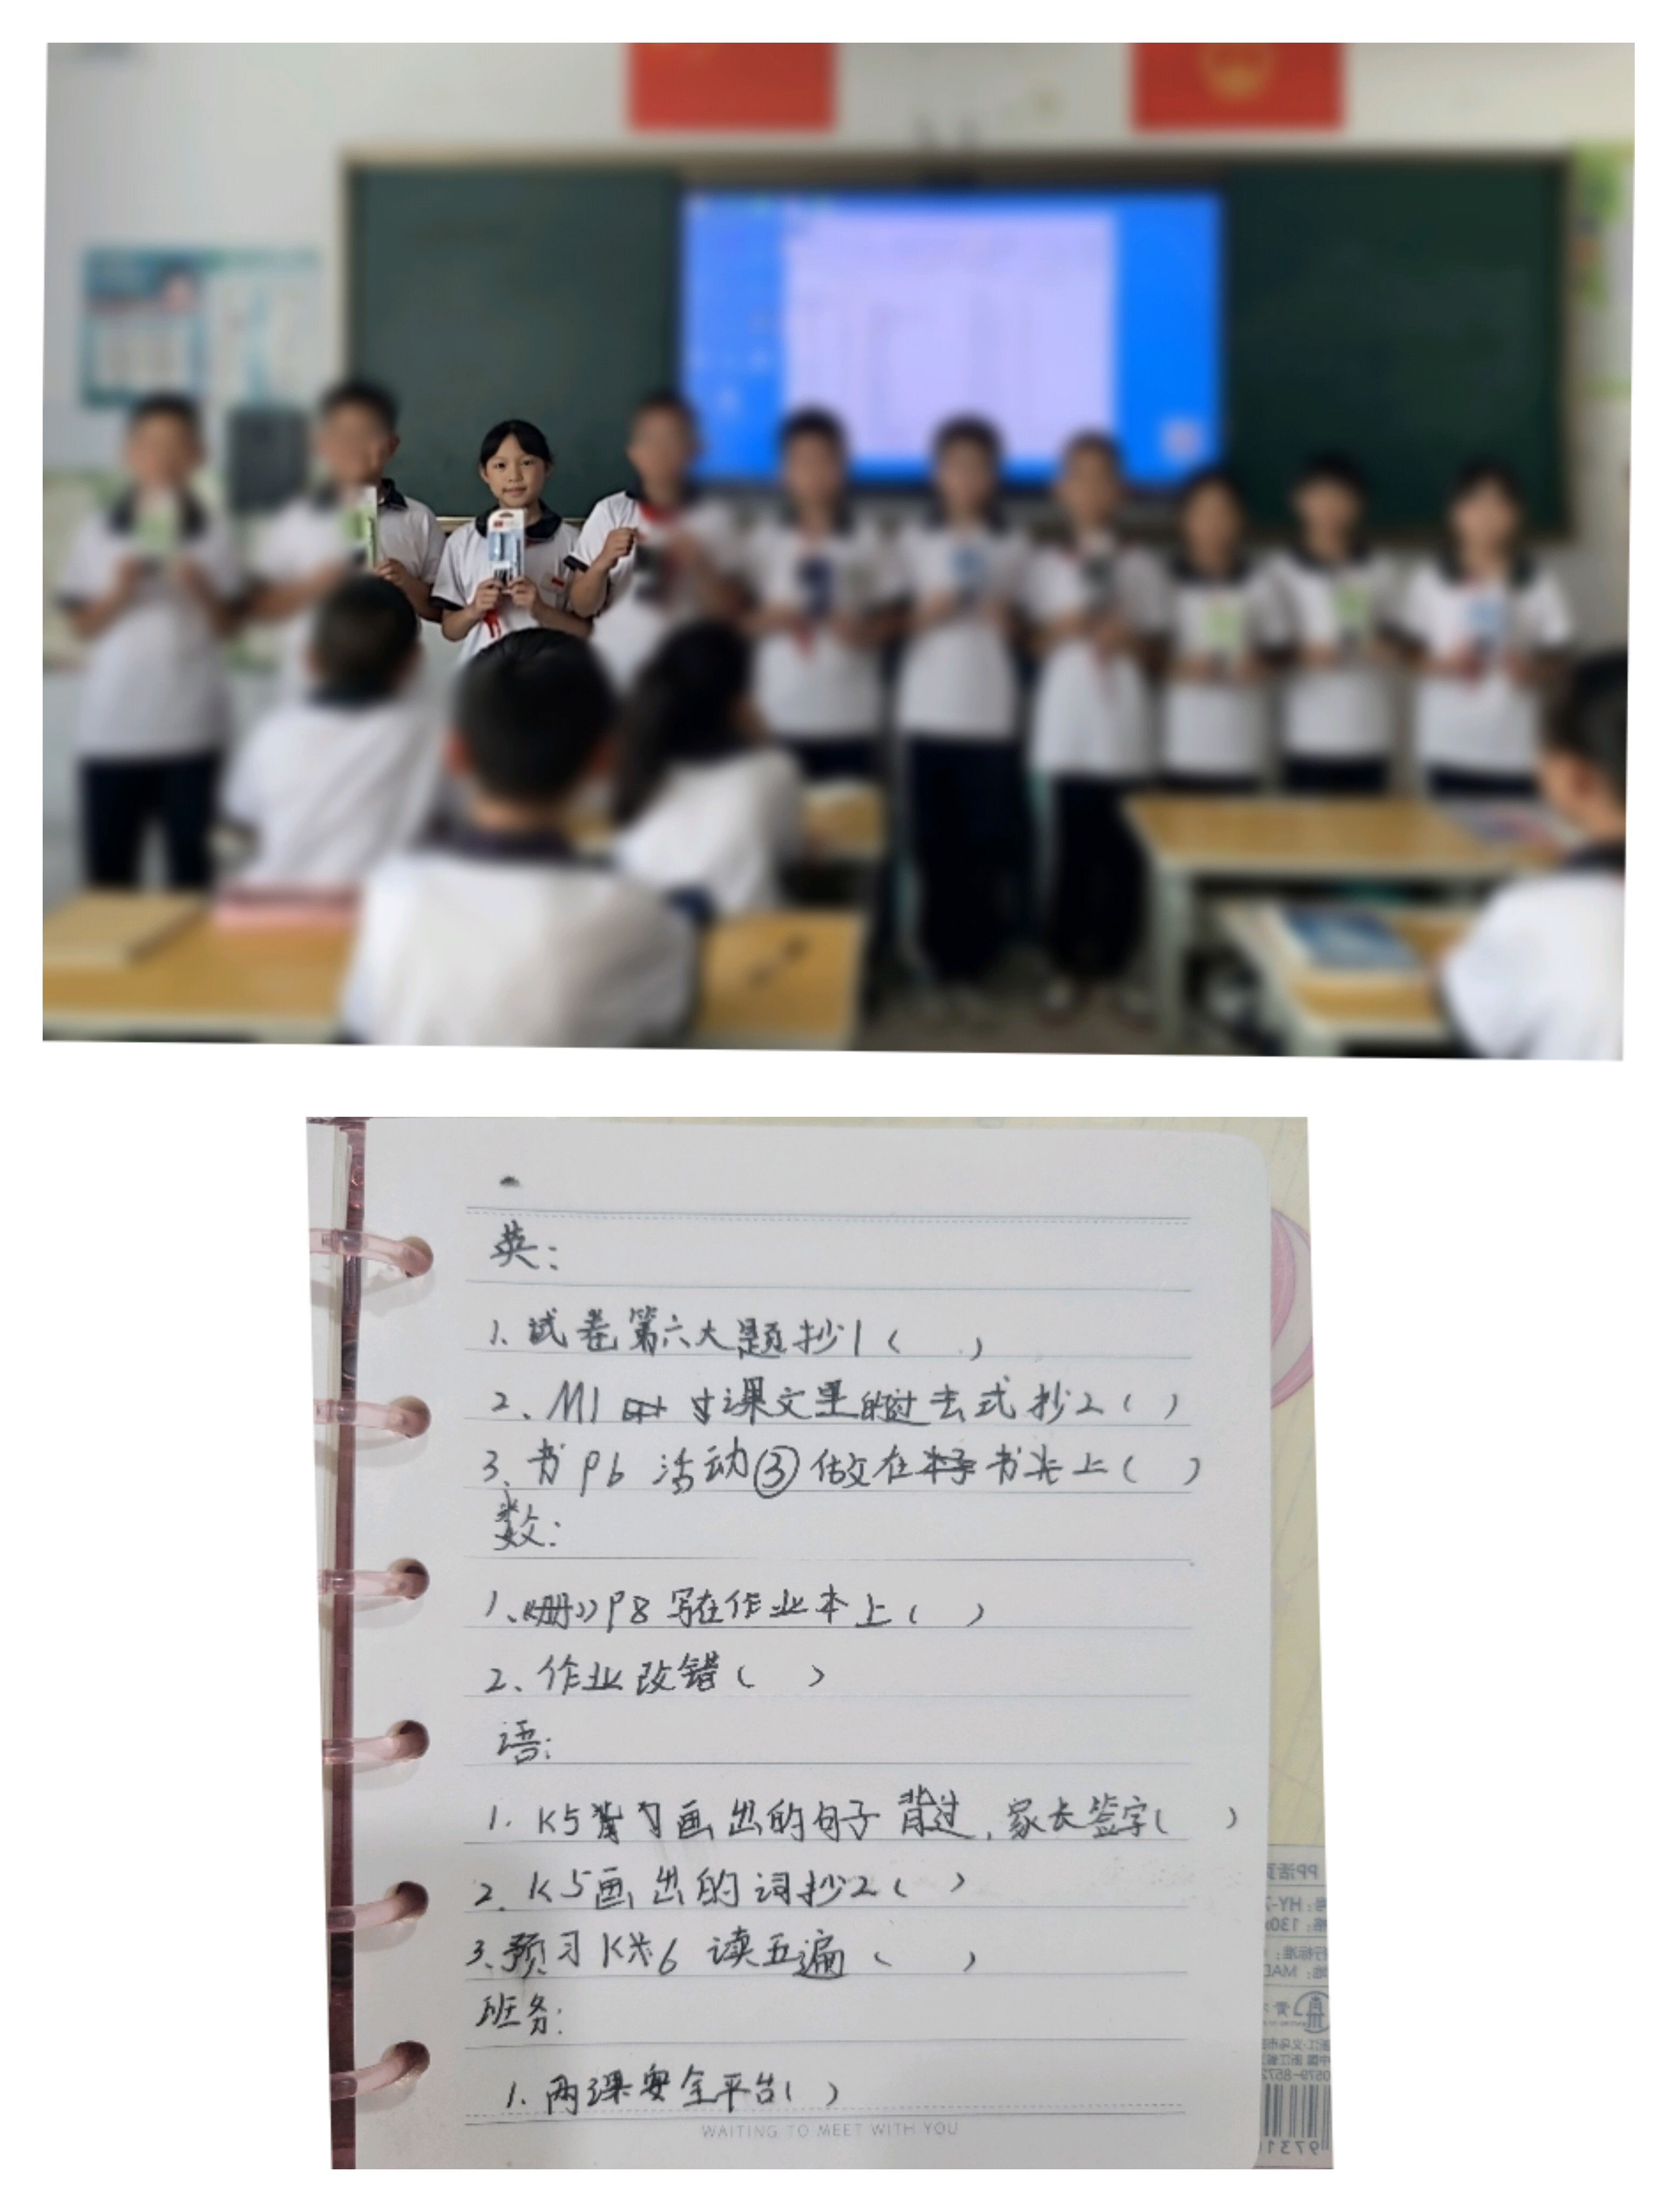 英:
1. 试卷第六大题抄1( )
2. M1 课文里的过去式抄2( )
3. 书P6 活动③做在书上( )
数:
1.《册》P8 写在作业本上( )
2、作业改错( )
语:
1. K5 画出的句子背过,家长签字( )
2. K5画出的词抄2( )
3.预习K6 读五遍( )
班务:
1. 两课安全平台( )
WAITING TO MEET WITH YOU